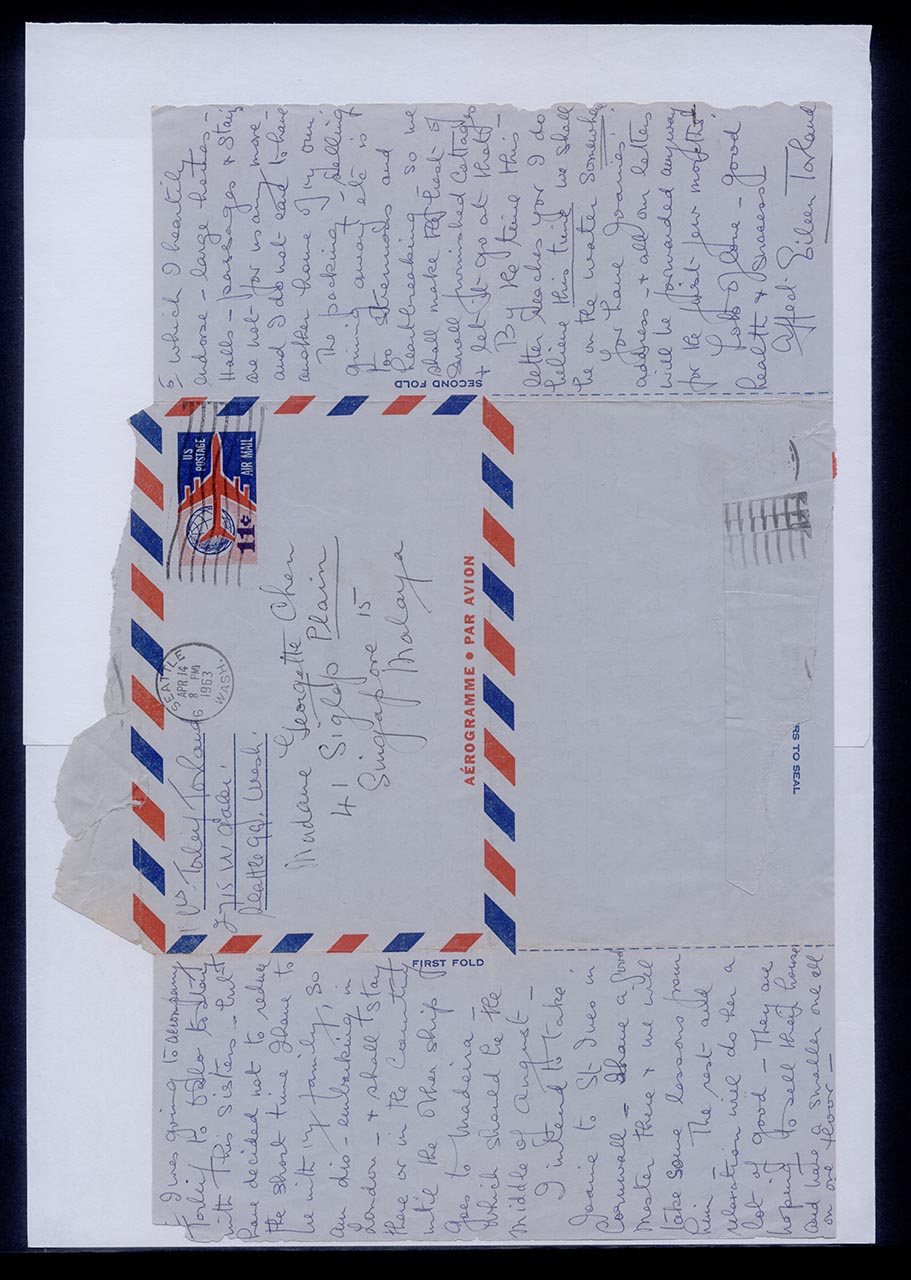 I was going to accompany
Torleif to Oslo to stay
with his sisters - but I
have decided not to reduce
the short time I have to
be with my family, so
am dis-embarking in
London - & shall stay
there or in the country
until the other ship
goes to Madeira -
which should be the
middle of August -
I intend to take
Joanie to St Ives in
Cornwall - I have a good
master there & we will
take some lessons from
him - The rest and
relaxation will do her a
lot of good - They are
hoping to sell their house
and have a smaller one all
on one floor -
FIRST FOLD
Torleif Torland
2715 W
Seattle 99. Wash.
SEATTLE
APR 14
8 PM
1963
WASH.
US
POSTAGE
AIR MAIL
11¢
Madame Georgette Chen
41 Siglap Plain
Singapore 15
Malaya
AÉROGRAMME • PAR AVION
SECOND FOLD
RS TO SEAL
5 which I heartily
endorse - large hotels -
Halls - passages & Stairs
are not for us any more -
and I do not care to have
another home of my own
The packing - selling
giving away etc is
too strenuous and
heartbreaking - so we
shall make the best of
small furnished Cottages
& let it go at that -
By the time this
letter reaches you I do
believe this time we shall
be on the water somewhere
You have Joanies'
address - & all our letters
will be forwarded anyway
for the first few months!
Lots of love - good
health & success!
Affect: Eileen Torland